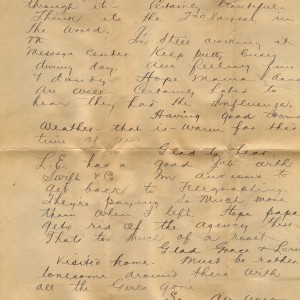 through it - Certainly beautiful
Think its the 2nd largest in
the World.
Im Still working in
Message Center. Keep pretty busy
during day. Am feeling fine
& dandy - Hope Mama & dan
are well. Certainly hated to
hear they has the Influenza.
Having good warm
Weather - that is - Warm for this
time of year.
Glad to hear
L.E. has a good job with
Swift & Co. Im anxious to
get back to Telegraphing.
Theyre paying so much more
than when I left. Hope papa
gets red of the agency there
Thats too much of a
Glad Grace &
Visited home. Must be rather
lonesome around there with
all the Girls Gone.